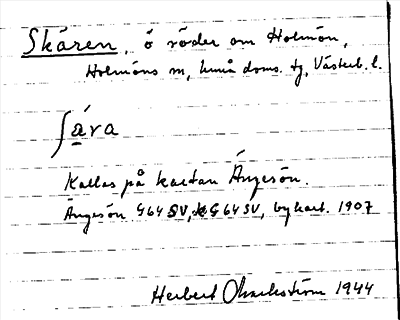 Skären, ö söder om Holmön,
Holmöns sn, Umeå doms. tg, Västerb. l.
Kallas på kartan Ängesön.
Ängesön G64SV, G64SV, bykart. 1907
Herbert 1944